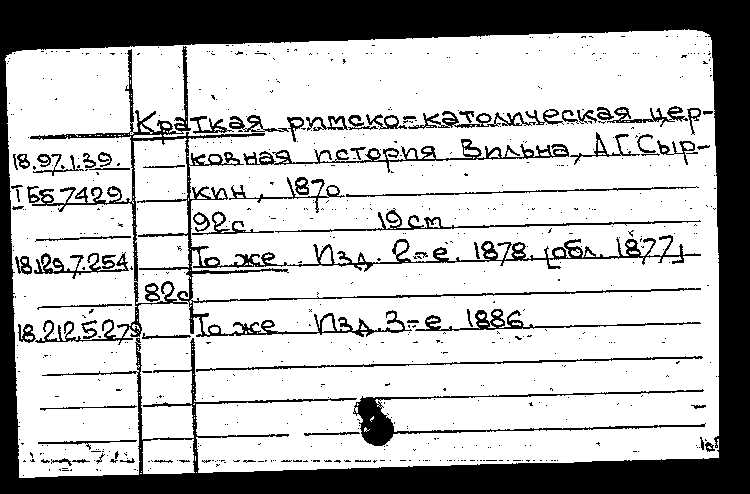 Краткая римско-католическая цер-
18.97.1.39. ковная история Вильна, А.Г. Сыр-
Т 55 7429. кин, 1870.
92с. 19 см
18.129.7.254. То же. Изд. 2-е. 1878. [обл. 1877]
82с.
18.212.5.279. То же Изд. 3-е. 1886.